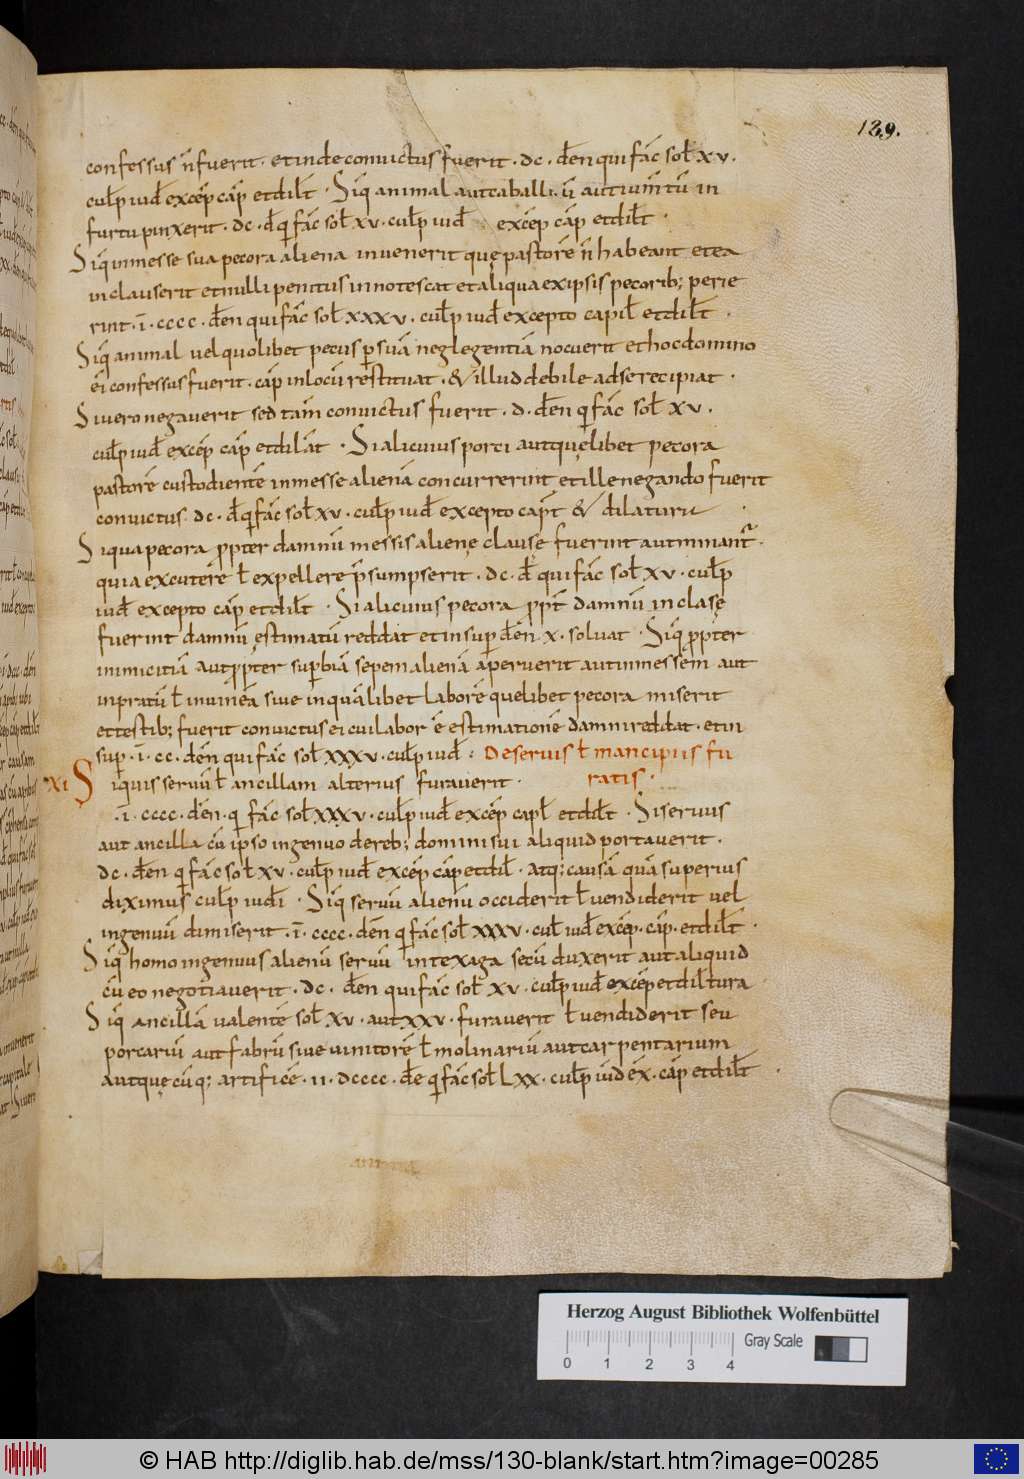 139.
confessus n̄ fuerit. et inde convictus fuerit. dc. den̄ qui fac̄ sol̄ xv.
culp̄ iud̄ excep̄ cap̄ et dil̄t. Siq̄ animal aut caballū ū aut ium̄tū in
furtu pinxerit. dc. d̄ q̄ fac̄ sol̄ xv. culp̄ iud̄ excep̄ cap̄ et dil̄t.
Siq̄ in messe sua pecora aliena invenerit quę pastorē n̄ habeant et ea
inclauserit et nulli penitus innotescat et aliqua ex ipsis pecorib; perie
rint. ī. cccc. den̄ qui fac̄ sol̄ xxxv. culp̄ iud̄ excepto capil̄ et dil̄t.
Siq̄ animal vel quolibet pecus p̱ suā neglegentiā nocuerit et hoc domino
ei confessus fuerit. cap̄ in locū restituat. & illud debile ad se recipiat.
Si vero negaverit sed tam̄ convictus fuerit. d. den̄ q̄ fac̄ sol̄ xv.
culp̄ iud̄ excep̄ cap̄ et dilāt. Si alicuius porci aut quęlibet pecora
pastorē custodientē in messe alienā concurrerint et ille negando fuerit
convictus. dc. d̄ q̄ fac̄ sol̄ xv. culp̄ iud̄ excepto cap̄t & dilaturu
Si qua pecora propter damnū messis alienę clausę fuerint aut minant᷑.
quia excutere ł expellere p̄sumpserit. dc. d̄ qui fac̄ sol̄ xv. culp̄
iud̄ excepto cap̄ et dil̄t. Si alicuius pecora propt̄ damnū inclasę
fuerint damnū estimatū reddat et insup̱ den̄. x. solvat. Siq̄ propter
inimicitiā aut propter sup̱biā sepem alienā aperuerit aut in messem aut
in pratū ł in vineā sive in quālibet laborē quelibet pecora miserit
et testib; fuerit convictus ei cui labor ē estimationē damni reddat. et in
sup̱. ī. cc. den̄ qui fac̄ sol̄ xxxv. culp̄ iud̄. De servis ł mancipiis fu
XI Siquis servū ł ancillam alterius furaverit. ratis.
.ī. cccc. den̄. q̄ fac̄ sol̄ xxxv. culp̄ iud̄ excep̄ capl̄ et dil̄t. Si servus
aut ancilla cū ipso ingenuo de reb; domini sui aliquid portaverit.
dc. den̄ q̄ fac̄ sol̄ xv. culp̄ iud̄ excep̄ cap̄ et dil̄. atq; causā quā superius
diximus culp̄ iud̄i. Siq̄ servū alienū occiderit ł vendiderit vel
ingenuū dimiserit. ī. cccc. den̄ q̄ fac̄ sol̄ xxxv. cul̄ iud̄ excep̄. cap̄. et dil̄t.
Siq̄ homo ingenuus alienū servū in texaga secū duxerit aut aliquid
cū eo negotiaverit. dc. den̄ qui fac̄ sol̄ xv. culp̄ iud̄ excep̄ et diltura
Siq̄ ancillā valentē sol̄ xv. aut xxv. furaverit ł vendiderit seu
porcariū aut fabrū sive vinitorē ł molinariū aut carpentarium
aut quęcūq; artificē. ii. dcccc. de q̄ fac̄ sol̄ Lxx. culp̄ iud ex̄. cap̄ et dil̄t.
Herzog August Bibliothek Wolfenbüttel
Gray Scale
0 1 2 3 4
© HAB http://diglib.hab.de/mss/130-blank/start.htm?image=00285